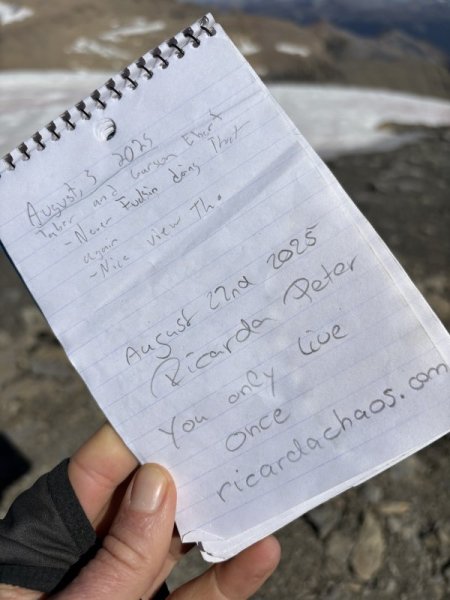 August, 3 2025
Taber and Carson
- Never Fuckin doing That
again
- Nice view Tho.
August 22nd 2025
Ricarda Peter
You only live
once
ricardachaos.com